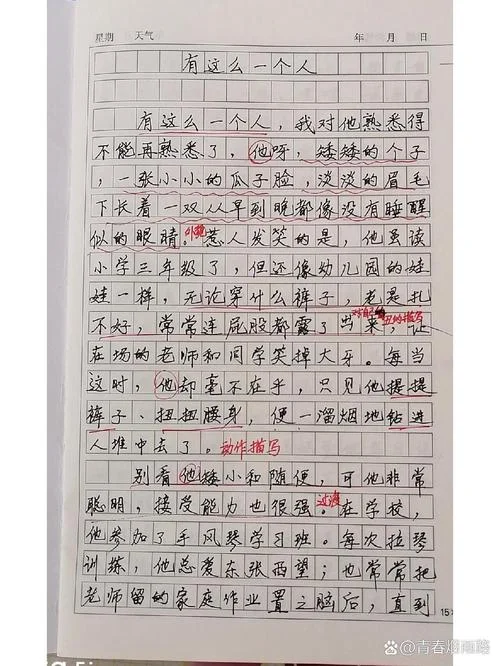 星期 天气 年 月 日
有这么一个人
有这么一个人，我对他熟悉得
不能再熟悉了，他呀，矮矮的个子
，一张小小的瓜子脸，淡淡的眉毛
下长着一双从早到晚都像没有睡醒
似的眼睛。外貌惹人发笑的是，他虽读
小学三年级了，但还像幼儿园的娃
娃一样，无论穿什么裤子，老是扎
不好，常常连屁股都露了出来，让
在场的老师和同学笑掉大牙。每当
这时，他却毫不在乎，只见他提提
裤子、扭扭腰身，便一溜烟地钻进
人堆中去了。动作描写
别看他矮小和随便，可他非常
聪明，接受能力也很强。过渡在学校，
他参加了手风琴学习班。每次拉琴
训练，他总爱东张西望；也常常把
老师留的家庭作业置之脑后，直到
15×
青春烟雨路